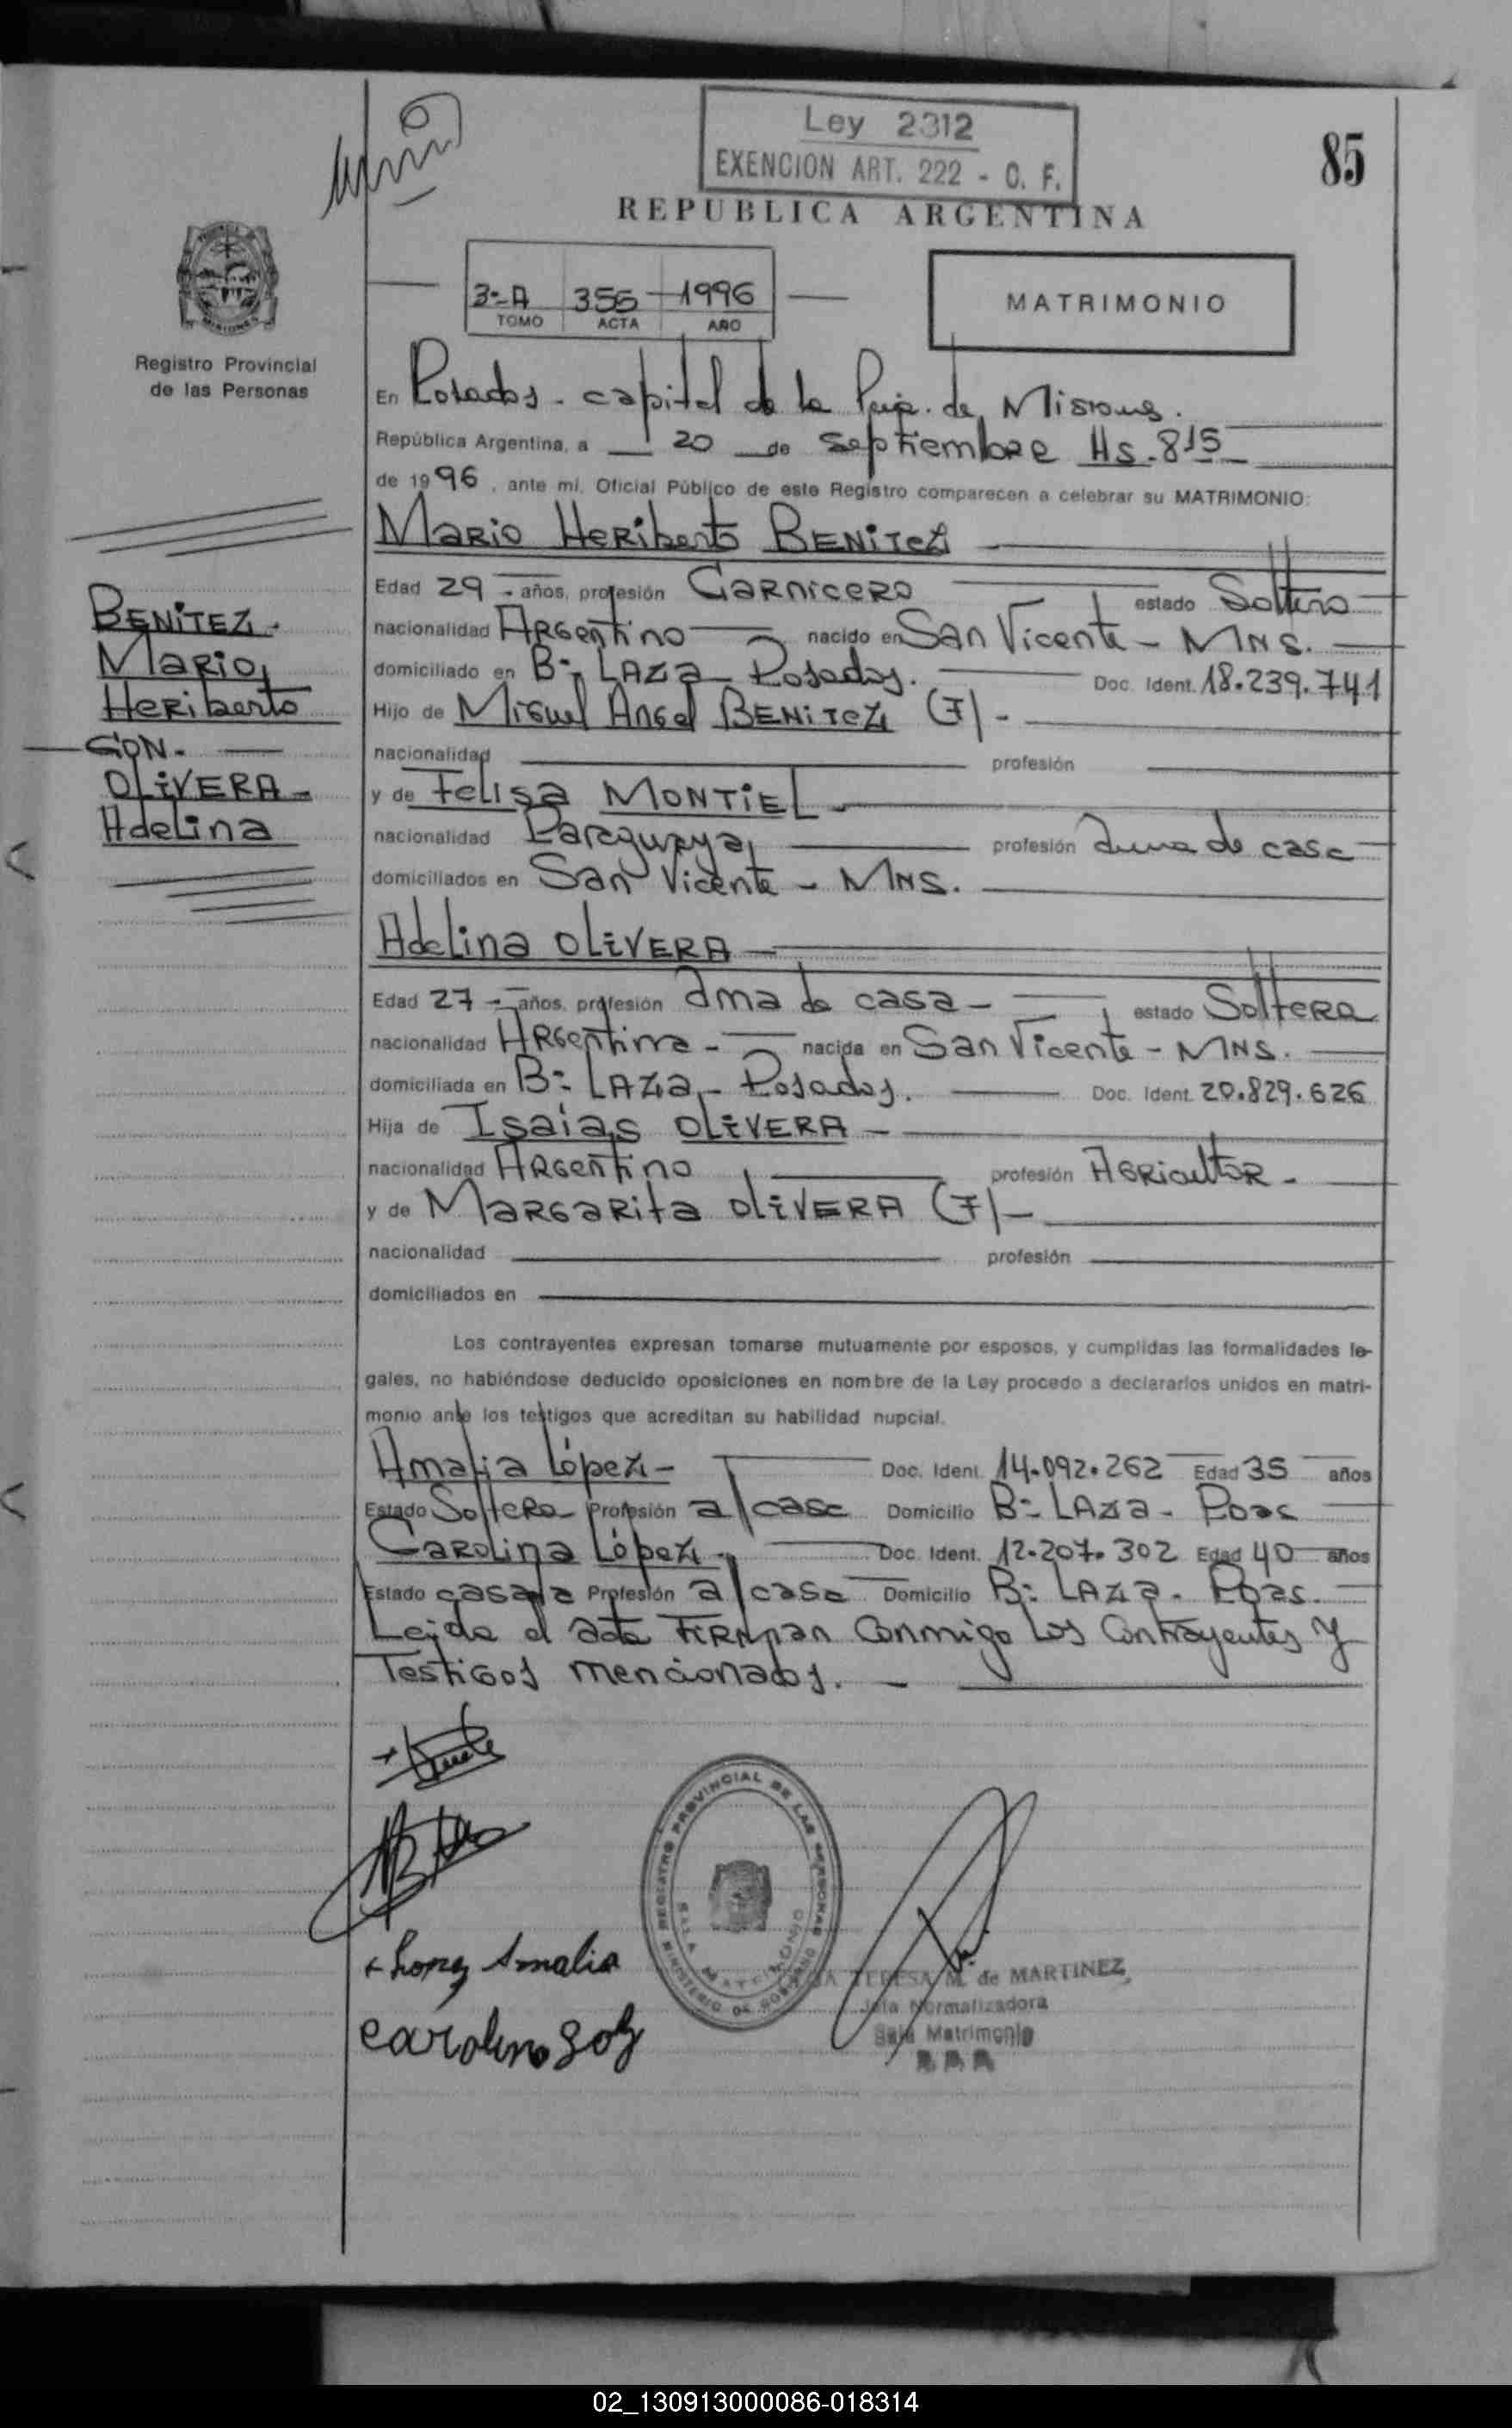 Ley 2312
EXENCION ART. 222 - C. F.
85
REPUBLICA ARGENTINA
3º-A 356 1996
TOMO ACTA AÑO
MATRIMONIO
Registro Provincial
de las Personas
En Posadas - capital de la Pcia. de Misiones.
República Argentina, a 20 de Septiembre Hs. 8 15
de 1996, ante mí, Oficial Público de este Registro comparecen a celebrar su MATRIMONIO:
Mario Heriberto BENITEZ
Edad 29 años, profesión Carnicero estado Soltero
nacionalidad Argentino nacido en San Vicente - MNS.
domiciliado en Bº LAZA - Posadas. Doc. Ident. 18.239.741
Hijo de Miguel Angel BENITEZ (F) -
nacionalidad profesión
y de Felisa MONTIEL
nacionalidad Paraguaya profesión ama de casa
domiciliados en San Vicente - MNS.
BENITEZ.
Mario
Heriberto
CON.
OLIVERA
Adelina
Adelina OLIVERA
Edad 27 años, profesión ama de casa - estado Soltera
nacionalidad Argentina - nacida en San Vicente - MNS.
domiciliada en Bº LAZA - Posadas. Doc. Ident. 20.829.626
Hija de Isaias OLIVERA -
nacionalidad Argentino profesión Agricultor -
y de Margarita OLIVERA (F) -
nacionalidad profesión
domiciliados en
Los contrayentes expresan tomarse mutuamente por esposos, y cumplidas las formalidades le-
gales, no habiéndose deducido oposiciones en nombre de la Ley procedo a declararlos unidos en matri-
monio ante los testigos que acreditan su habilidad nupcial.
Amalia López - Doc. Ident. 14.092.262 Edad 35 años
Estado Soltera Profesión a/casa Domicilio Bº LAZA - Pdas
Carolina López - Doc. Ident. 12.207.302 Edad 40 años
Estado casada Profesión a/casa Domicilio Bº LAZA - Pdas.
Leida el acta FIRMAN conmigo los Contrayentes y
Testigos mencionados. -
REGISTRO PROVINCIAL DE LAS PERSONAS
MINISTERIO DE GOBIERNO
SALA MATRIMONIO
Lopez Amalia
TERESA M. de MARTINEZ
Jefa Normalizadora
Sala Matrimonio
02_130913000086-018314